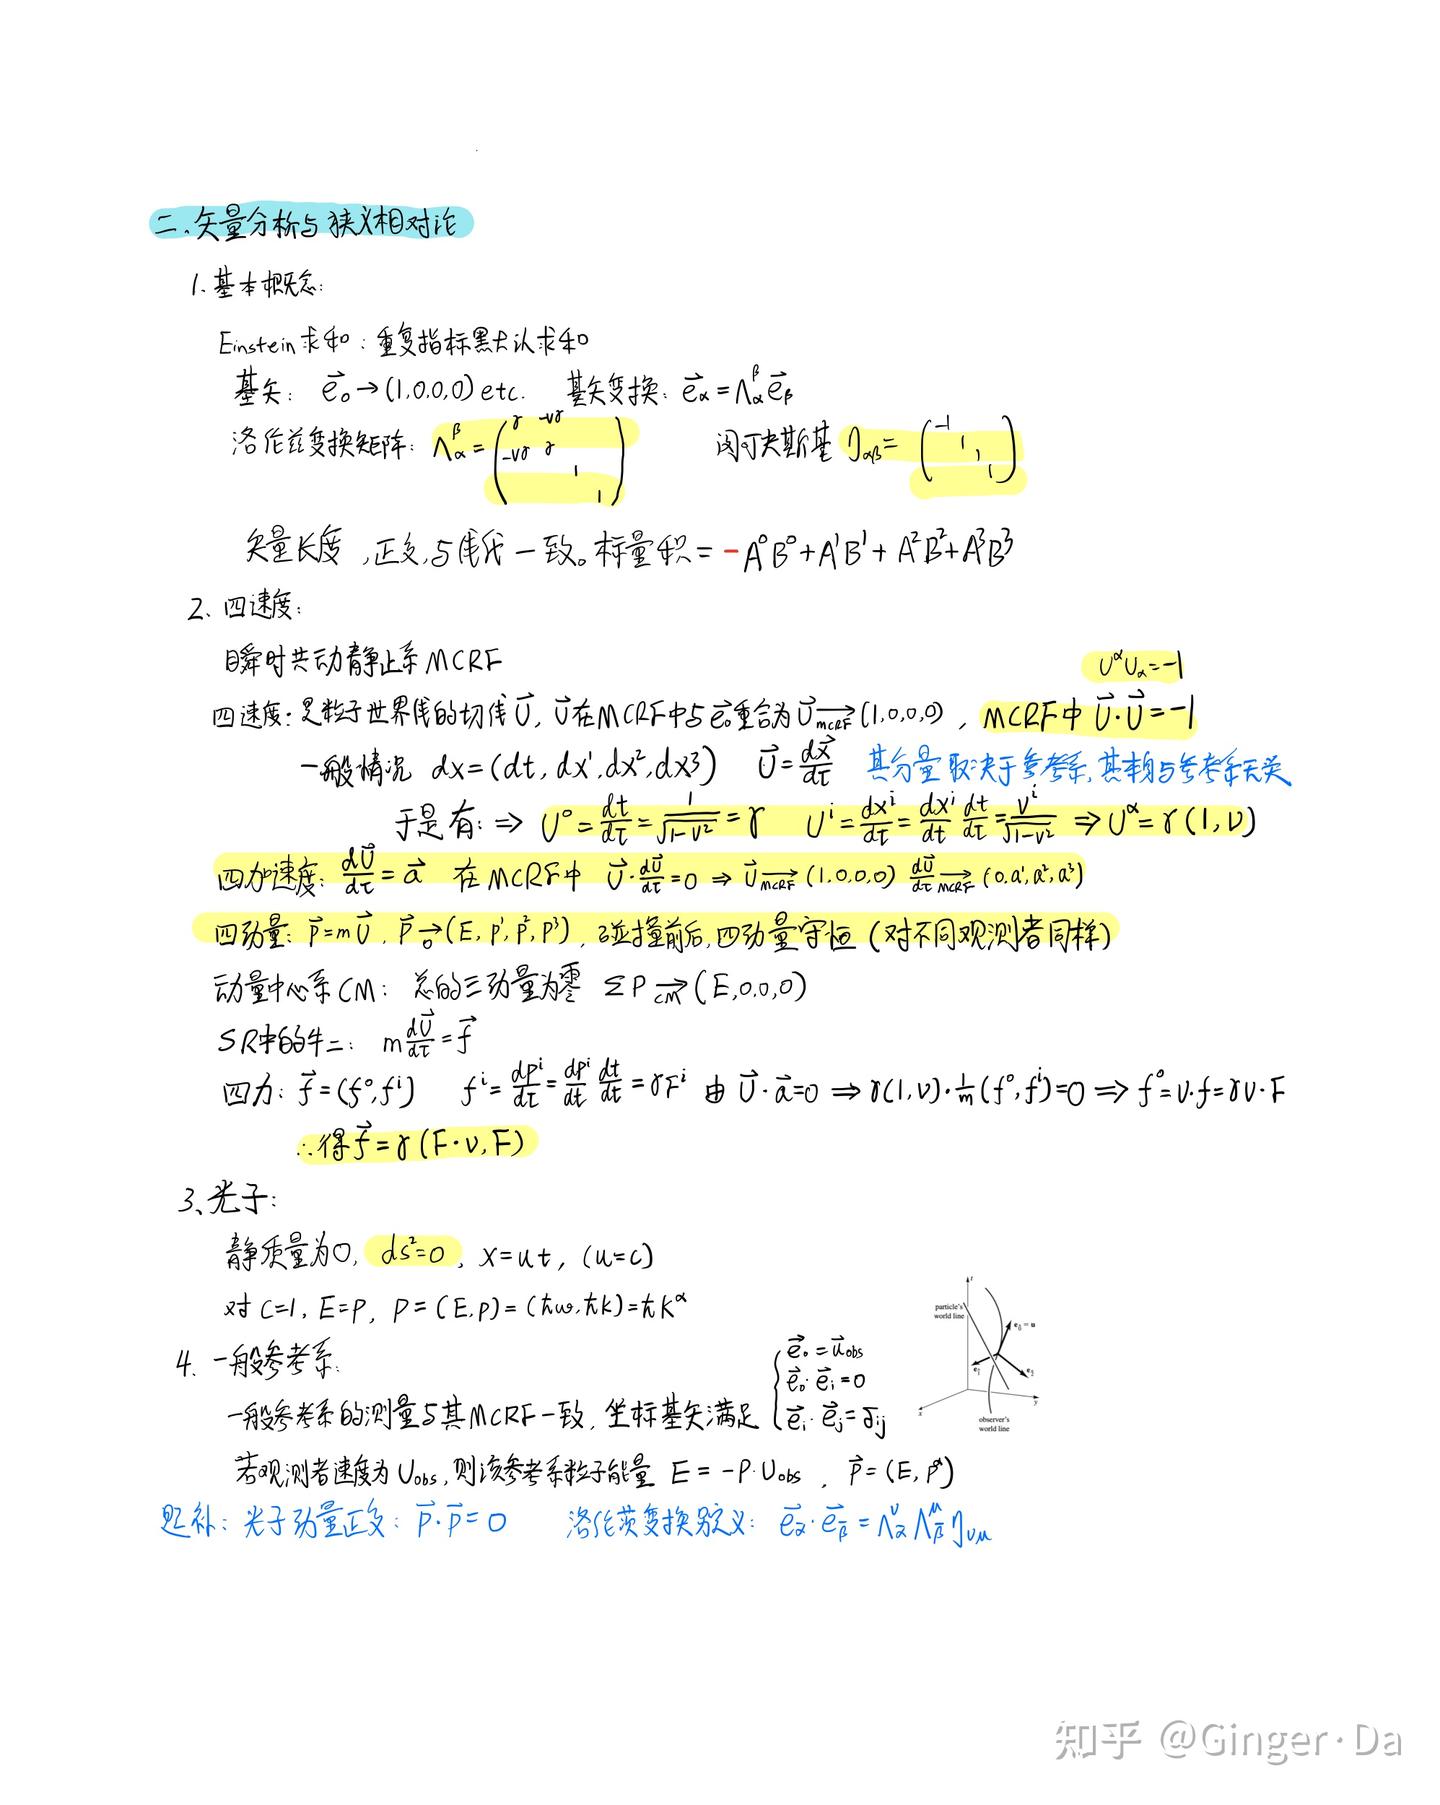 二、矢量分析与狭义相对论
1. 基本概念:
Einstein求和:重复指标默认求和
基矢: e⃗₀→(1,0,0,0) etc. 基矢变换: e⃗_α=Λ_α^β e⃗_β
洛伦兹变换矩阵: Λ_α^β=(γ -vγ
-vγ γ
1
1) 闵可夫斯基 η_αβ=(-1
1
1
1)
矢量长度,正交,与线代一致。标量积=-A⁰B⁰+A¹B¹+A²B²+A³B³
2、四速度:
瞬时共动静止系MCRF
U^αU_α=-1
四速度:是粒子世界线的切线U⃗, U⃗在MCRF中与e⃗₀重合为U⃗ →_MCRF (1,0,0,0), MCRF中 U⃗·U⃗=-1
一般情况 dx=(dt, dx¹,dx²,dx³) U⃗=dx⃗/dτ 其分量取决于参考系,其本身与参考系无关
于是有: ⇒ U⁰=dt/dτ=1/√(1-v²)=γ Uⁱ=dxⁱ/dτ=dxⁱ/dt dt/dτ=vⁱ/√(1-v²) ⇒U^α=γ(1,v)
四加速度: dU⃗/dτ=a⃗ 在MCRF中 U⃗·dU⃗/dτ=0 ⇒ U⃗ →_MCRF (1,0,0,0) dU⃗/dτ →_MCRF (0,a¹,a²,a³)
四动量: p⃗=mU⃗, p⃗ →_O (E, p¹,p²,p³), 碰撞前后,四动量守恒(对不同观测者同样)
动量中心系CM: 总的三动量为零 ΣP →_CM (E,0,0,0)
SR中的牛二: m dU⃗/dτ=f⃗
四力: f⃗=(f⁰,fⁱ) fⁱ=dpⁱ/dτ=dpⁱ/dt dt/dτ=γFⁱ 由 U⃗·a⃗=0 ⇒γ(1,v)·1/m(f⁰,fⁱ)=0⇒f⁰=v·f=γv·F
∴得f⃗=γ(F·v,F)
3、光子:
静质量为0, ds²=0, x=ut, (u=c)
对 c=1, E=P, P=(E,p)=(ħω,ħk)=ħK^α
4. 一般参考系:
一般参考系的测量与其MCRF一致,坐标基矢满足 {e⃗₀=u⃗_obs
e⃗₀·e⃗_i=0
e⃗_i·e⃗_j=δ_ij
particle's
world line
t
e_0̂ = u
e_1̂
e_2̂
x
y
observer's
world line
若观测者速度为U_obs,则该参考系粒子能量 E=-P·U_obs, p⃗=(E, p^α)
题补:光子动量正交: p⃗·p⃗=0 洛伦茨变换另定义: e⃗_ᾱ·e⃗_β̄=Λ_ᾱ^ν Λ_β̄^μ η_νμ
知乎 @Ginger·Da